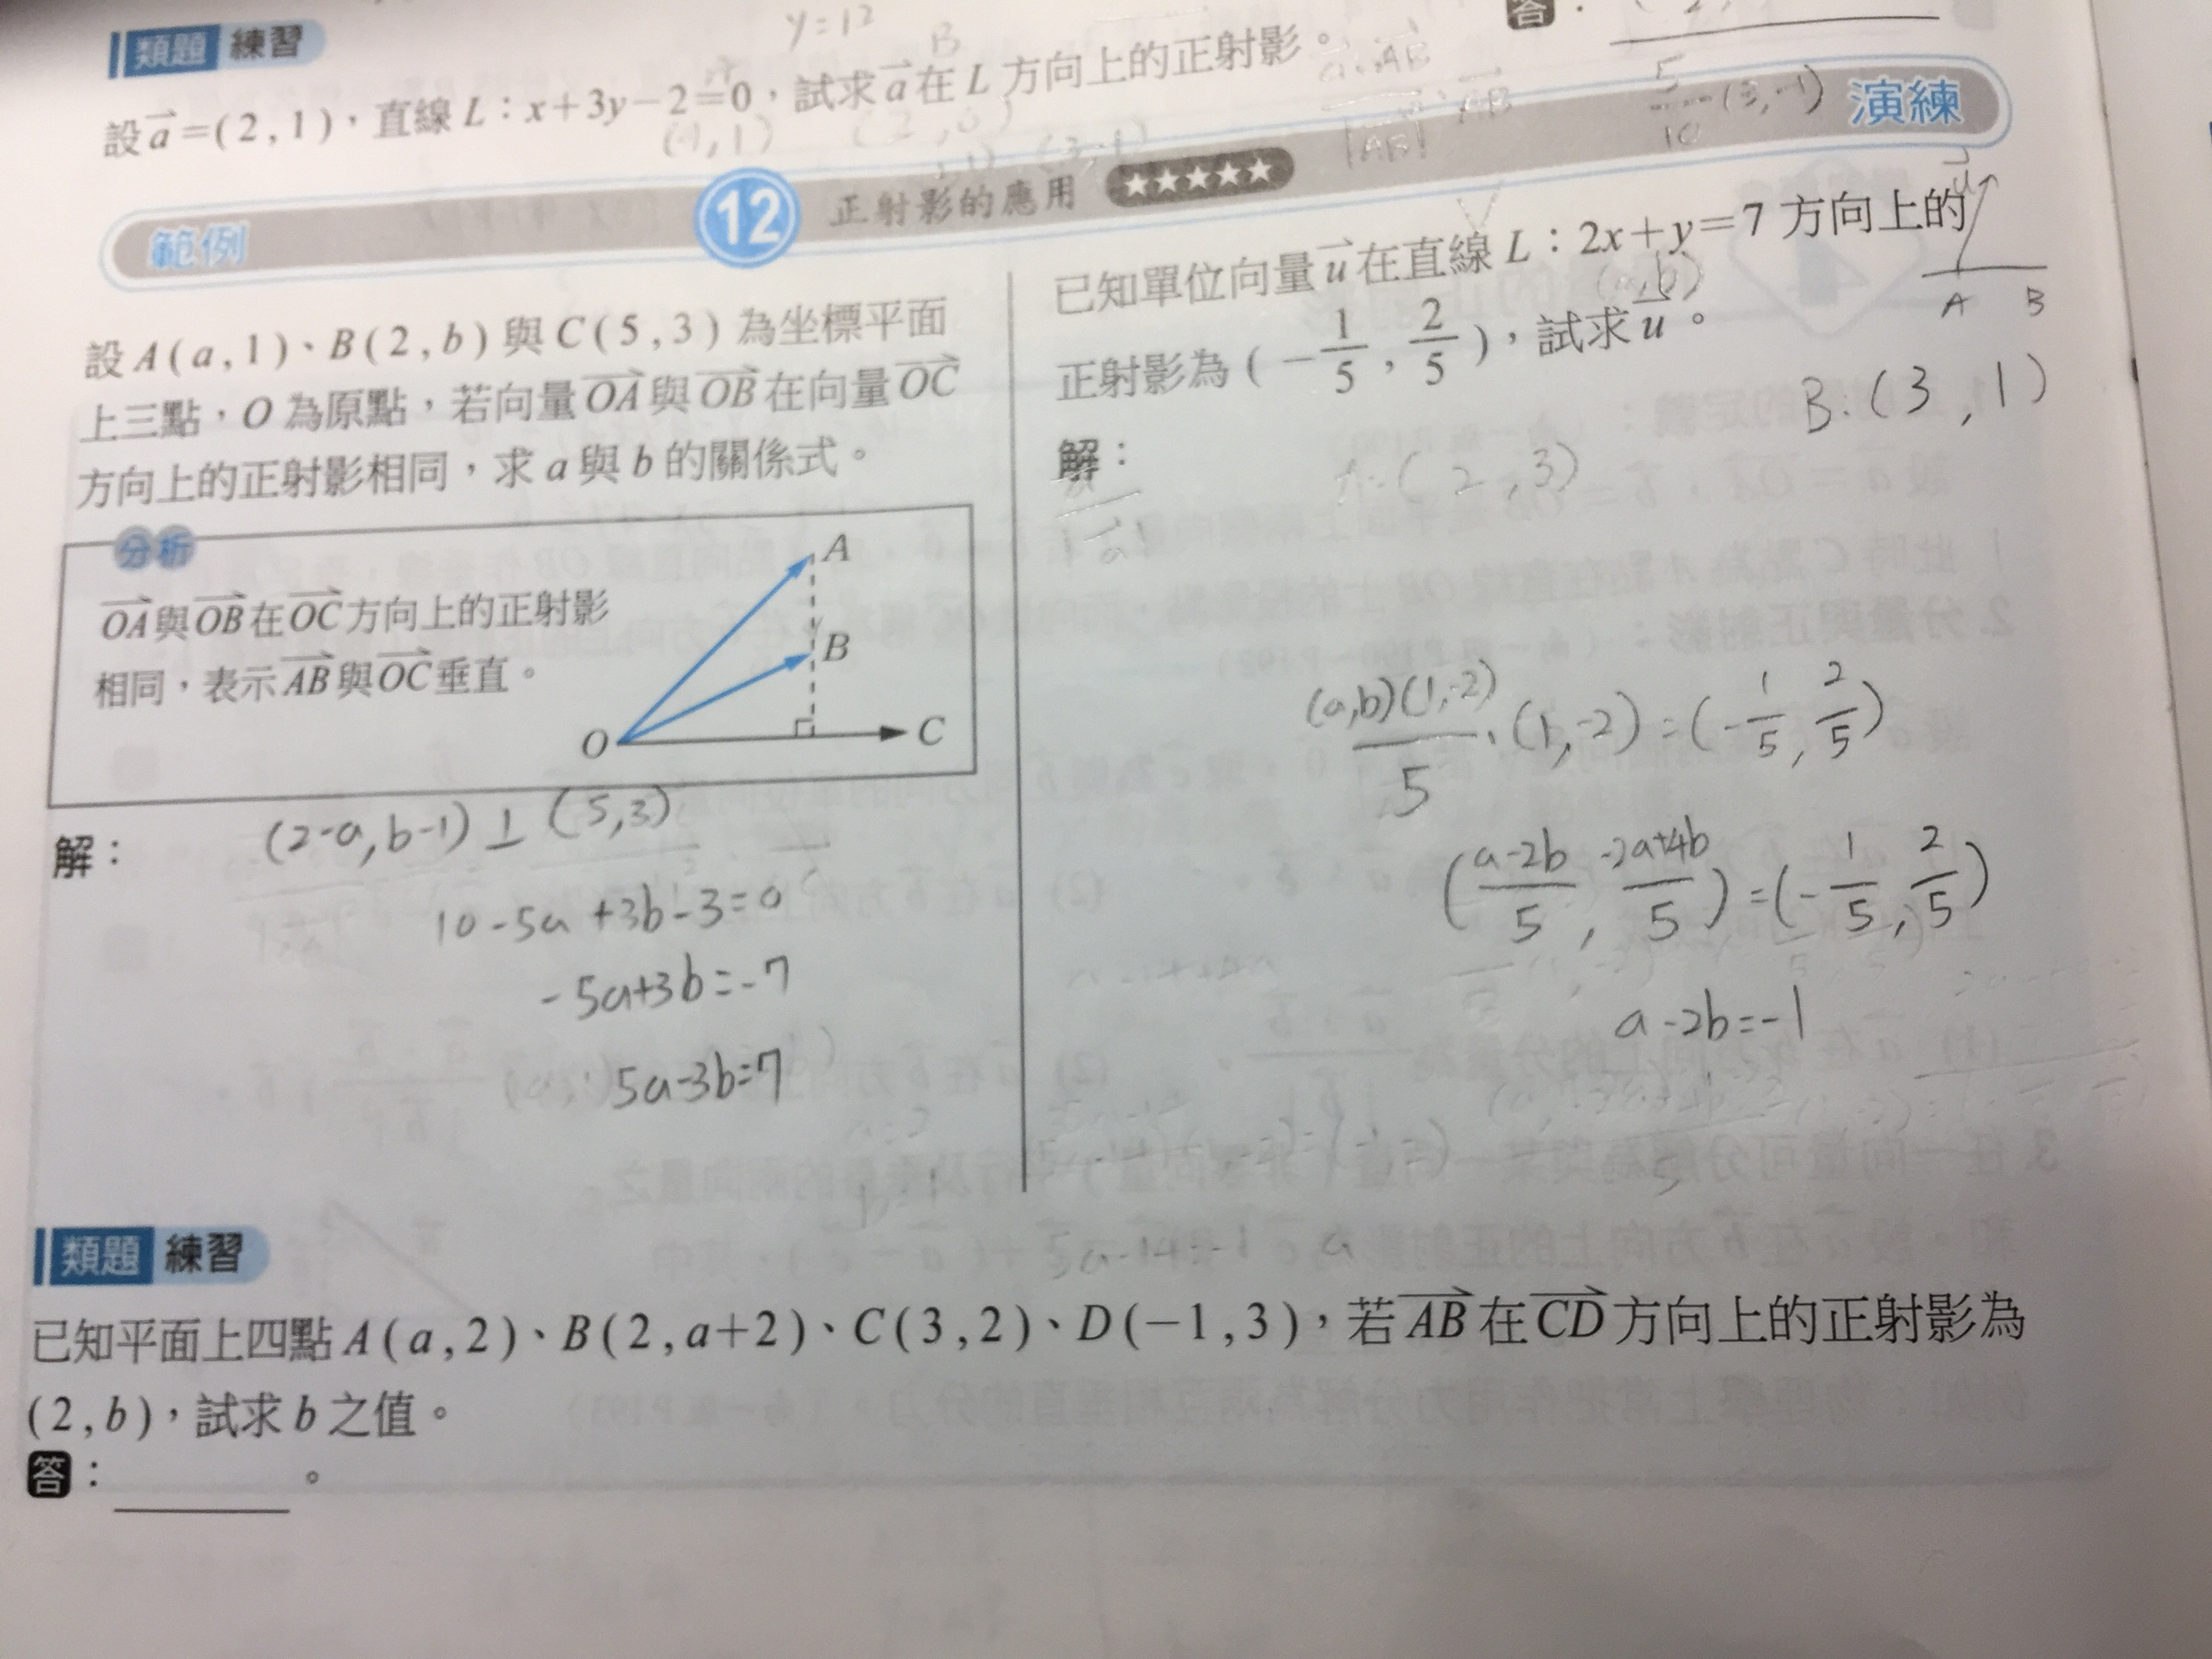 y=12
答：
類題 練習
設a=(2,1)，直線L：x+3y−2=0，試求a在L方向上的正射影。
範例 12 正射影的應用 ★★★★★ 演練
設A(a,1)、B(2,b)與C(5,3)為坐標平面
上三點，O為原點，若向量OA與OB在向量OC
方向上的正射影相同，求a與b的關係式。
分析
OA與OB在OC方向上的正射影
相同，表示AB與OC垂直。
A
B
O
C
解：
(2-a,b-1)⊥(5,3)
10-5a+3b-3=0
-5a+3b=-7
5a-3b=7
已知單位向量u在直線L：2x+y=7方向上的
(a,b)
正射影為(−1/5,2/5)，試求u。
u
A B
B:(3,1)
解：
A:(2,3)
(a,b)(1,-2)/5·(1,-2)=(-1/5,2/5)
(a-2b/5,-2a+4b/5)=(-1/5,2/5)
a-2b=-1
類題 練習
已知平面上四點A(a,2)、B(2,a+2)、C(3,2)、D(−1,3)，若AB在CD方向上的正射影為
(2,b)，試求b之值。
答：　　　。